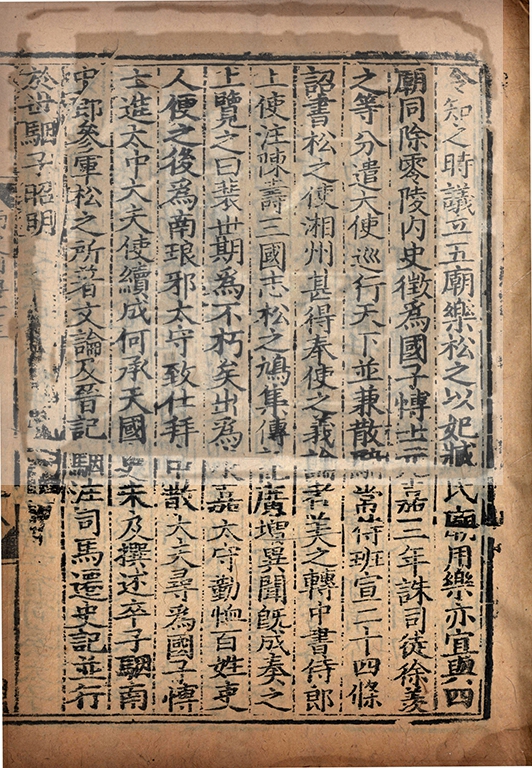 令知之時議立五廟樂松之以妃臧氏廟用樂亦宜與四
廟同除零陵內史徵爲國子愽士元嘉三年誅司徒徐羨
之等分遣大使巡行天下並兼散騎常侍班宣二十四條
詔書松之使湘州甚得奉使之義論者美之轉中書侍郎
上使注陳壽三國志松之鳩集傳記廣增異聞旣成奏之
上覽之曰裴世期爲不朽矣出爲永嘉太守勤恤百姓吏
人便之後爲南琅邪太守致仕拜中散大夫尋爲國子愽
士進太中大夫使續成何承天國史未及撰述卒子駰南
中郎參軍松之所著文論及晉記駰注司馬遷史記並行
於世駰子昭明